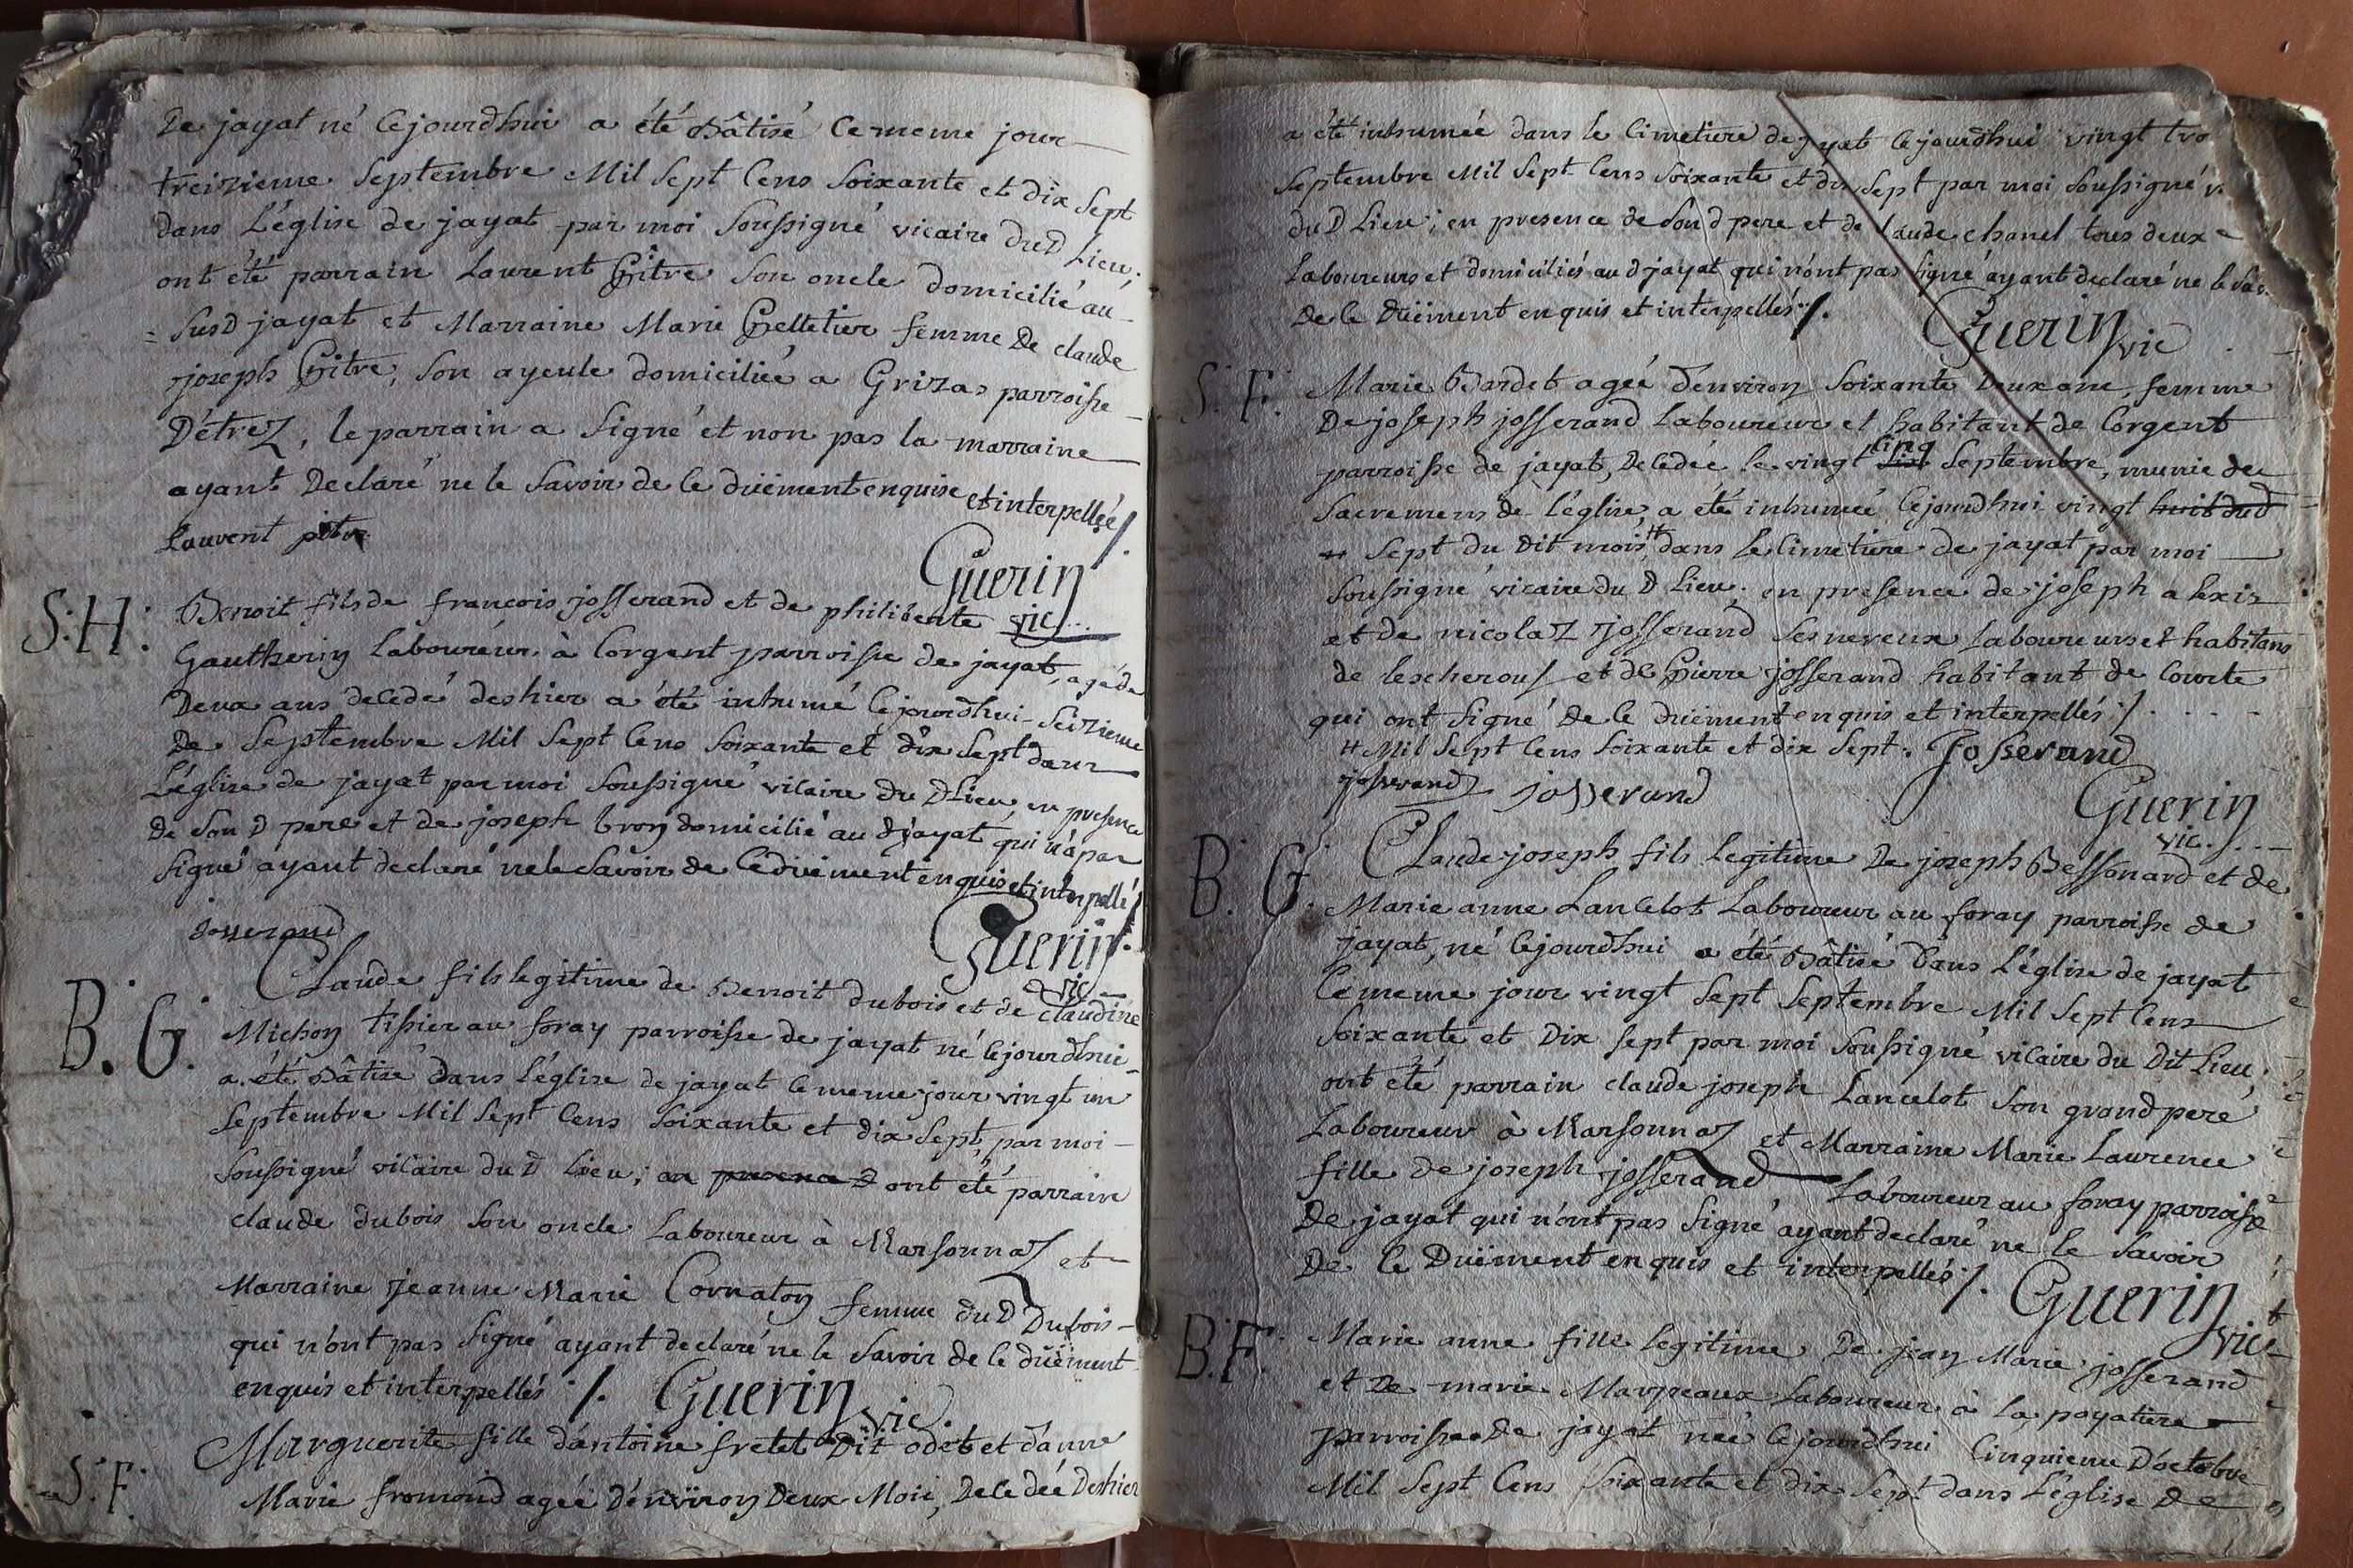 De jayat né Cejourdhui a été Bâtisé Ce meme jour
treizieme Septembre Mil Sept Cens Soixante et dix Sept
dans L'église de jayat par moi Soussigné vicaire duD Lieu.
ont été parrain Laurent Pitre Son oncle domicilié au
= SusD jayat et Marraine Marie Pelletier femme De claude
joseph Pitre, Son ayeule domiciliée a Grizas parroisse
D'étreZ, le parrain a Signé et non pas la marraine
ayant Declaré ne le Savoir de Ce düement enquise et interpellée /.
Laurent pitre
Guerin
vic...
S:H: Benoit fils de francois josserand et de philiberte
Gautherin Laboureur à Corgent parroisse de jayat, agé de
Deux ans decedé des hier a été inhumé Cejourdhui Seizieme
De Septembre Mil Sept Cens Soixante et dix Sept dans
L'église de jayat par moi Soussigné vicaire du D Lieu, en presence
De Son D pere et de joseph bron domicilié au d jayat qui n'a pas
Signé ayant declaré ne le Savoir de Ce duement enquis et interpellé /
Josserand
Guerin
vic
B. G. Claude fils legitime de Benoit dubois et de claudine
Michon tissier au foray parroisse de jayat né Cejourdhui
a été Bâtisé dans l'église de jayat Ce meme jour vingt un
Septembre Mil Sept Cens Soixante et dix Sept, par moi
Soussigné vicaire du D Lieu; ont été parrain
claude dubois Son oncle Laboureur à MarsonnaZ et
Marraine jeanne Marie Cornaton femme du D Dubois
qui n'ont pas Signé ayant declaré ne le Savoir de Ce düement
enquis et interpellés /. Guerin vic.
S. F. Marguerite fille d'antoine fretet Dit odet et d'anne
Marie fromond agée D'environ Deux Mois, Decedée Des hier
a été inhumée dans le Cimetiere de jayat Cejourdhui vingt tro
Septembre Mil Sept Cens Soixante et dix Sept par moi Soussigné v
du D Lieu; en presence de Son d pere et de Claude chanel tous deux
Laboureurs et domiciliés au d jayat qui n'ont pas Signé ayant declaré ne le Sav
de Ce Düement enquis et interpellés /.
Guerin vic
S. F. Marie Bardet agée d'environ Soixante Deux ans, femme
De joseph josserand Laboureur et habitant de Corgent
parroisse de jayat, Decedée le vingt Cinq Septembre, munie des
Sacremens de l'église, a été inhumée Cejourdhui vingt huit dud
# Sept du Dit mois # dans le Cimetiere de jayat par moi
Soussigné vicaire du D Lieu; en presence de joseph alexis
et de nicolaZ josserand Ses neveux Laboureurs et habitans
de lescherous et de Pierre josserand habitant de Courte
qui ont Signé De Ce duement enquis et interpellés /.
# Mil Sept Cens Soixante et dix Sept. Josserand
josserand josserand
Guerin
vic./...
B. G. Claude joseph fils Legitime De joseph Bessonard et de
Marie anne Lancelot Laboureur au foray parroisse de
jayat, né Cejourdhui a été Bâtisé Dans L'église de jayat
Ce meme jour vingt Sept Septembre Mil Sept Cens
Soixante et Dix Sept par moi Soussigné vicaire du Dit Lieu;
ont été parrain claude joseph Lancelot Son grand pere
Laboureur à MarsonnaZ et Marraine Marie Laurence
fille de joseph josserand Laboureur au foray parroisse
De jayat qui n'ont pas Signé ayant declaré ne le Savoir
De Ce Duement enquis et interpellés /. Guerin
vic
B. F. Marie anne fille legitime De jean Marie josserand
et De marie Marpeaux Laboureur à la poyatiere
parroisse De jayat née Cejourdhui Cinquieme D'octobre
Mil Sept Cens Soixante et dix Sept dans L'église De